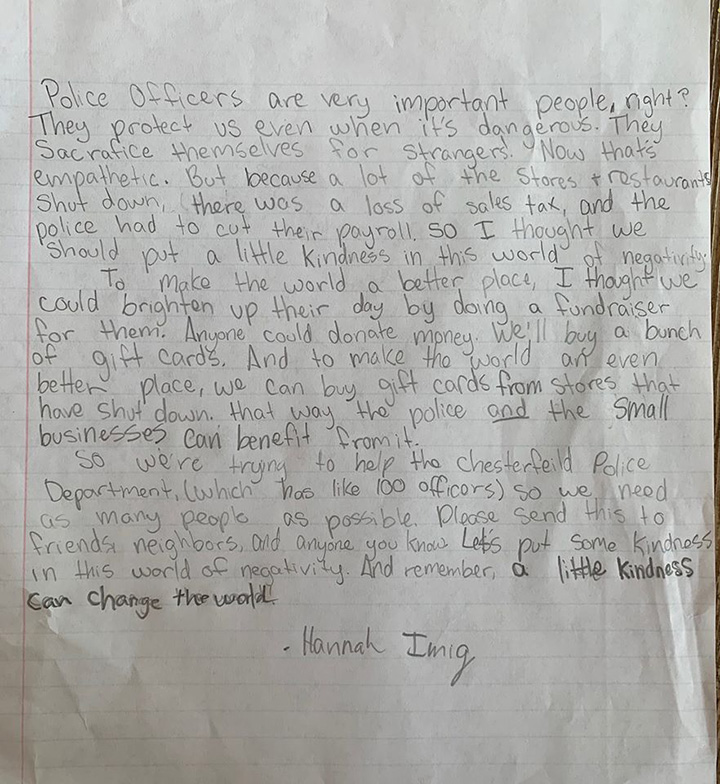 Police Officers are very important people, right?
They protect us even when it's dangerous. They
Sacrafice themselves for strangers. Now that's
empathetic. But because a lot of the stores + restaurants
Shut down, there was a loss of sales tax, and the
police had to cut their payroll. So I thought we
should put a little kindness in this world of negativity.
To make the world a better place, I thought we
could brighten up their day by doing a fundraiser
for them. Anyone could donate money. We'll buy a bunch
of gift cards. And to make the world an even
better place, we can buy gift cards from stores that
have shut down. that way the police and the small
businesses can benefit from it.
So we're trying to help the Chesterfeild Police
Department, (which has like 100 officors) so we need
as many people as possible. Please send this to
friends, neighbors, and anyone you know. Lets put some kindness
in this world of negativity. And remember, a little kindness
can change the world!
- Hannah Imig